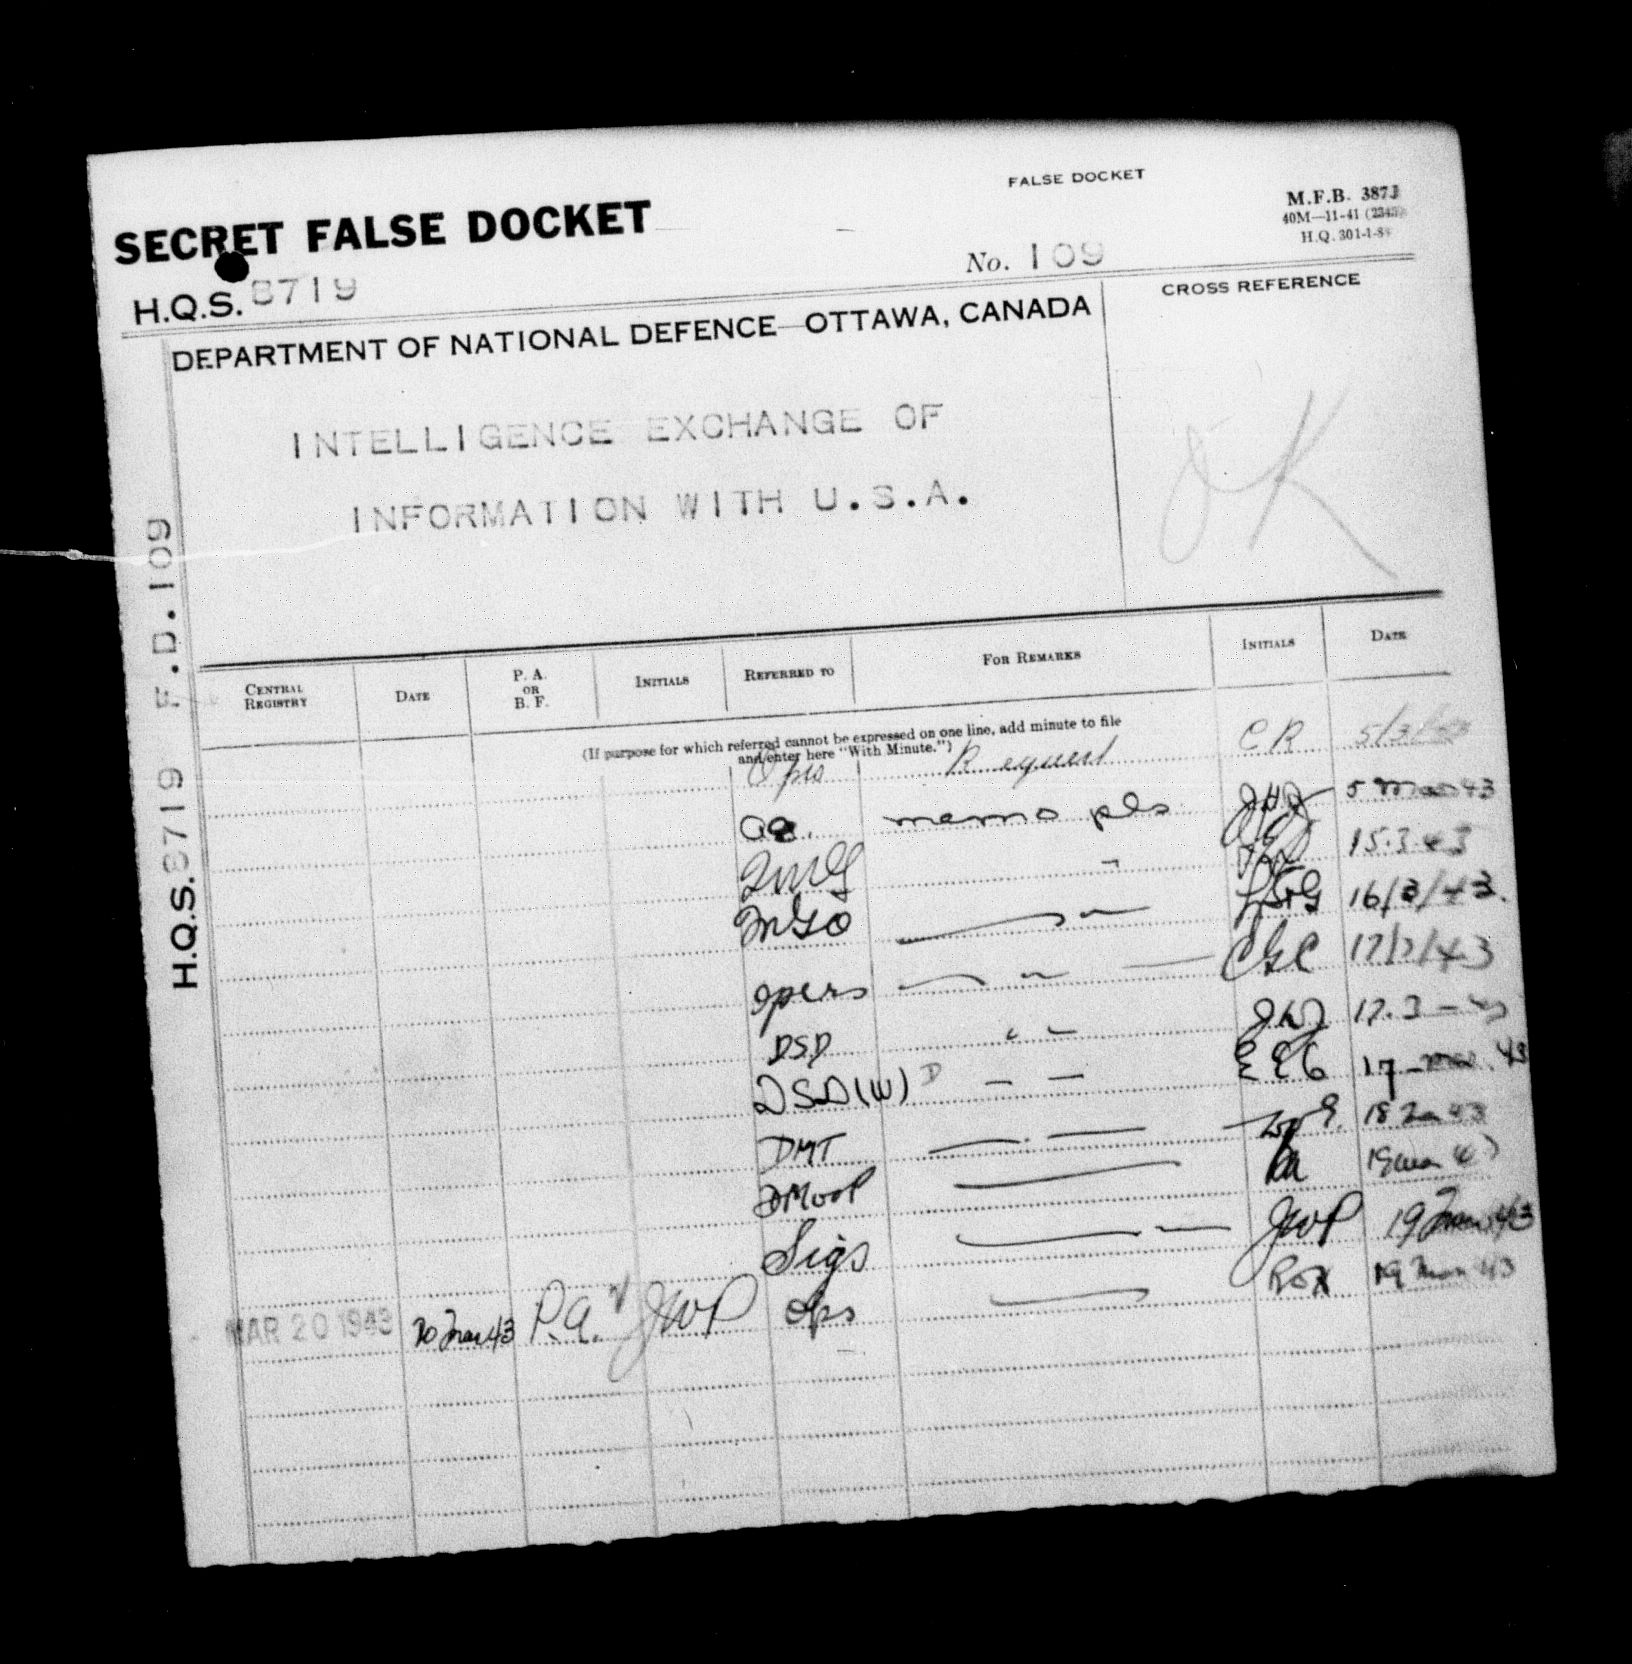 FALSE DOCKET
M.F.B. 387J
40M—11-41 (2345)
H.Q. 301-1-8
SECRET FALSE DOCKET
No. 109
H.Q.S. 8719
CROSS REFERENCE
DEPARTMENT OF NATIONAL DEFENCE—OTTAWA, CANADA
INTELLIGENCE EXCHANGE OF
INFORMATION WITH U.S.A.
OK
H.Q.S. 8719 F.D. 109
CENTRAL REGISTRY DATE P. A. OR B. F. INITIALS REFERRED TO FOR REMARKS INITIALS DATE
(If purpose for which referred cannot be expressed on one line, add minute to file
and enter here "With Minute.")
Ops Request CR 5/3/43
memo pls 5 Mar 43
QMG 15.3.43
MGO 16/3/43.
Opers CGC 17/3/43
DSD " " 17.3-43
DSD(W) D — — EEG 17-Mar. 43
DMT 18 Mar 43
DMOOP 19 Mar 43
Sigs JWP 19 Mar 43
MAR 20 1943 20 Mar 43 P.A. JWP Ops 19 Mar 43